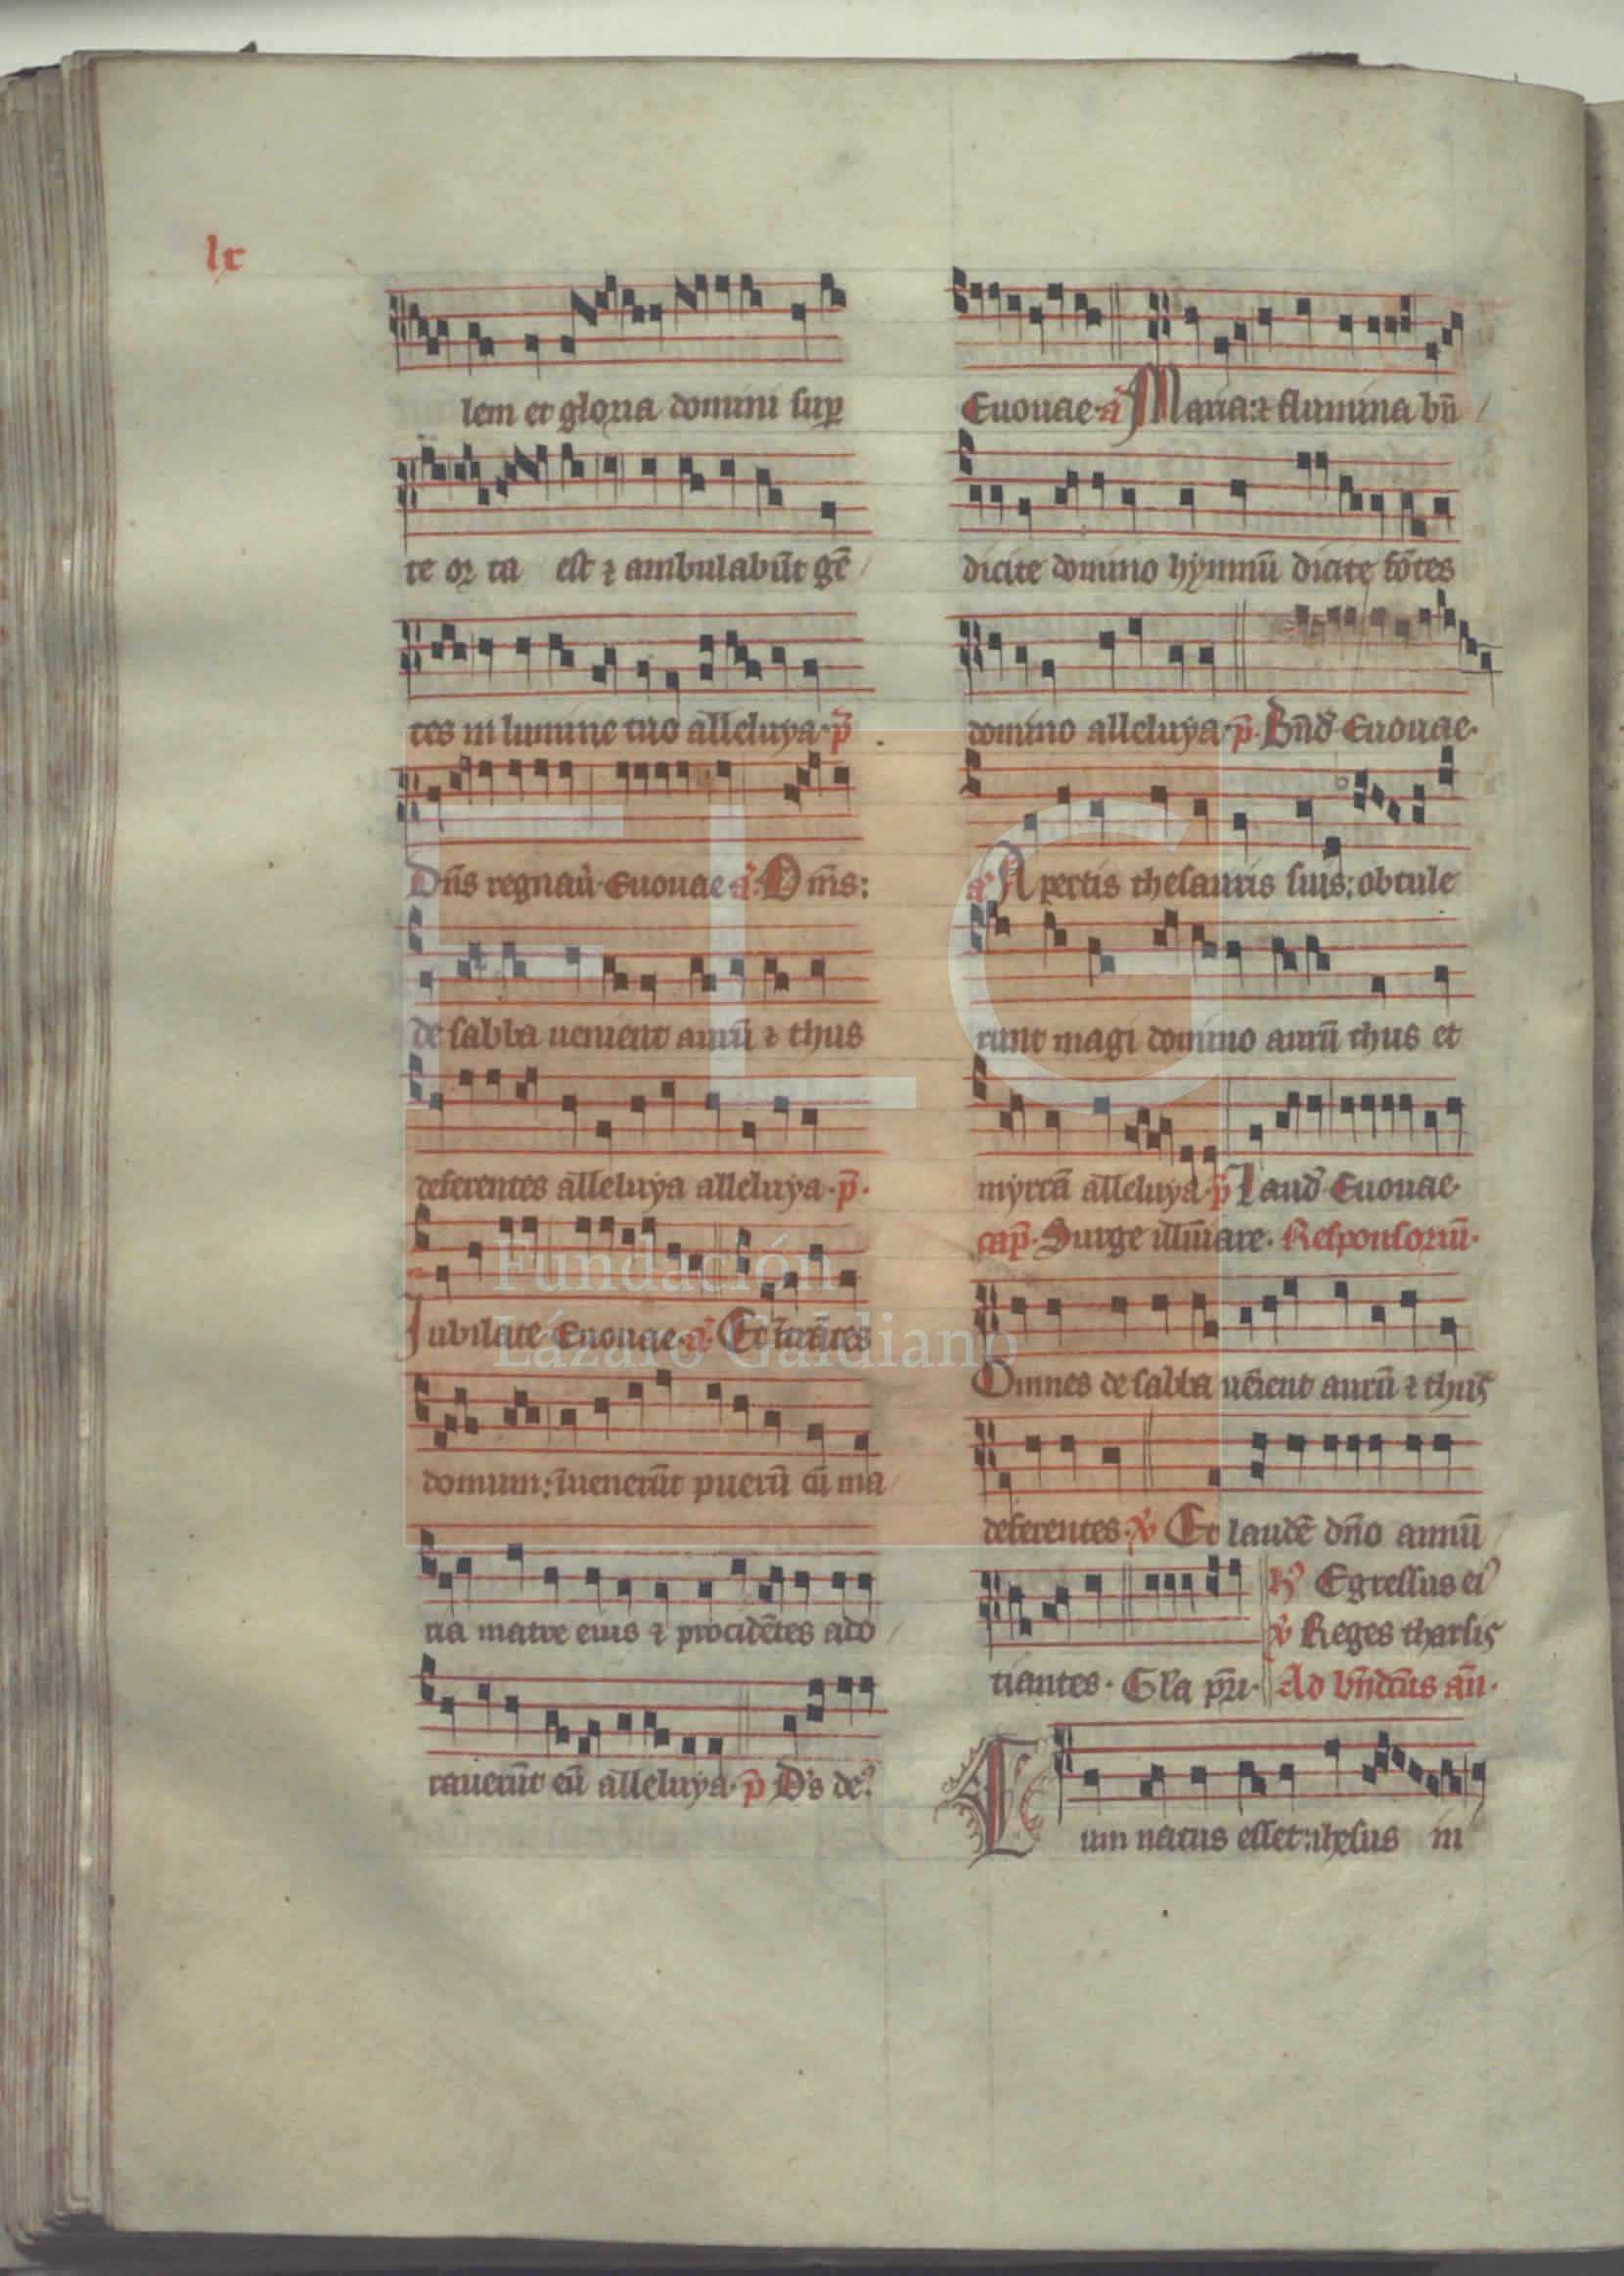 lx
lem et gloria domini sup
te or ta est ⁊ ambulabūt gē
tes in lumine tuo alleluya. p̄
Dn̄s regnaū. Euouae aᷓ. Om̄s:
de sabba uenient aurū ⁊ thus
deferentes alleluya alleluya. p̄.
Iubilate Euouae. aᷓ. Et ītrātes
domum: īuenerūt puerū cū ma
ria matre eius ⁊ procidētes ado
rauerūt eū alleluya. p̄ D's de'
Euouae. aᷓ Maria: ⁊ flumina bn̄
dicite domino hymnū dicite fōtes
domino alleluya. p̄. Bn̄d' Euouae.
aᷓ Apertis thesauris suis: obtule
runt magi domino aurū thus et
myrrā alleluya. p̄ Laud' Euouae.
cap̄. Surge illūiare. Responsoriū.
Omnes de sabba uēient aurū ⁊ thus
deferentes. ℣ Et laudē dn̄o annū
℟ Egressus ei'
℣ Reges tharsis
tiantes. Gl'a pr̄i. Ad bn̄dcūs an̄.
Cum natus esset: ihesus in
Fundación
Lázaro Galdiano
FLG